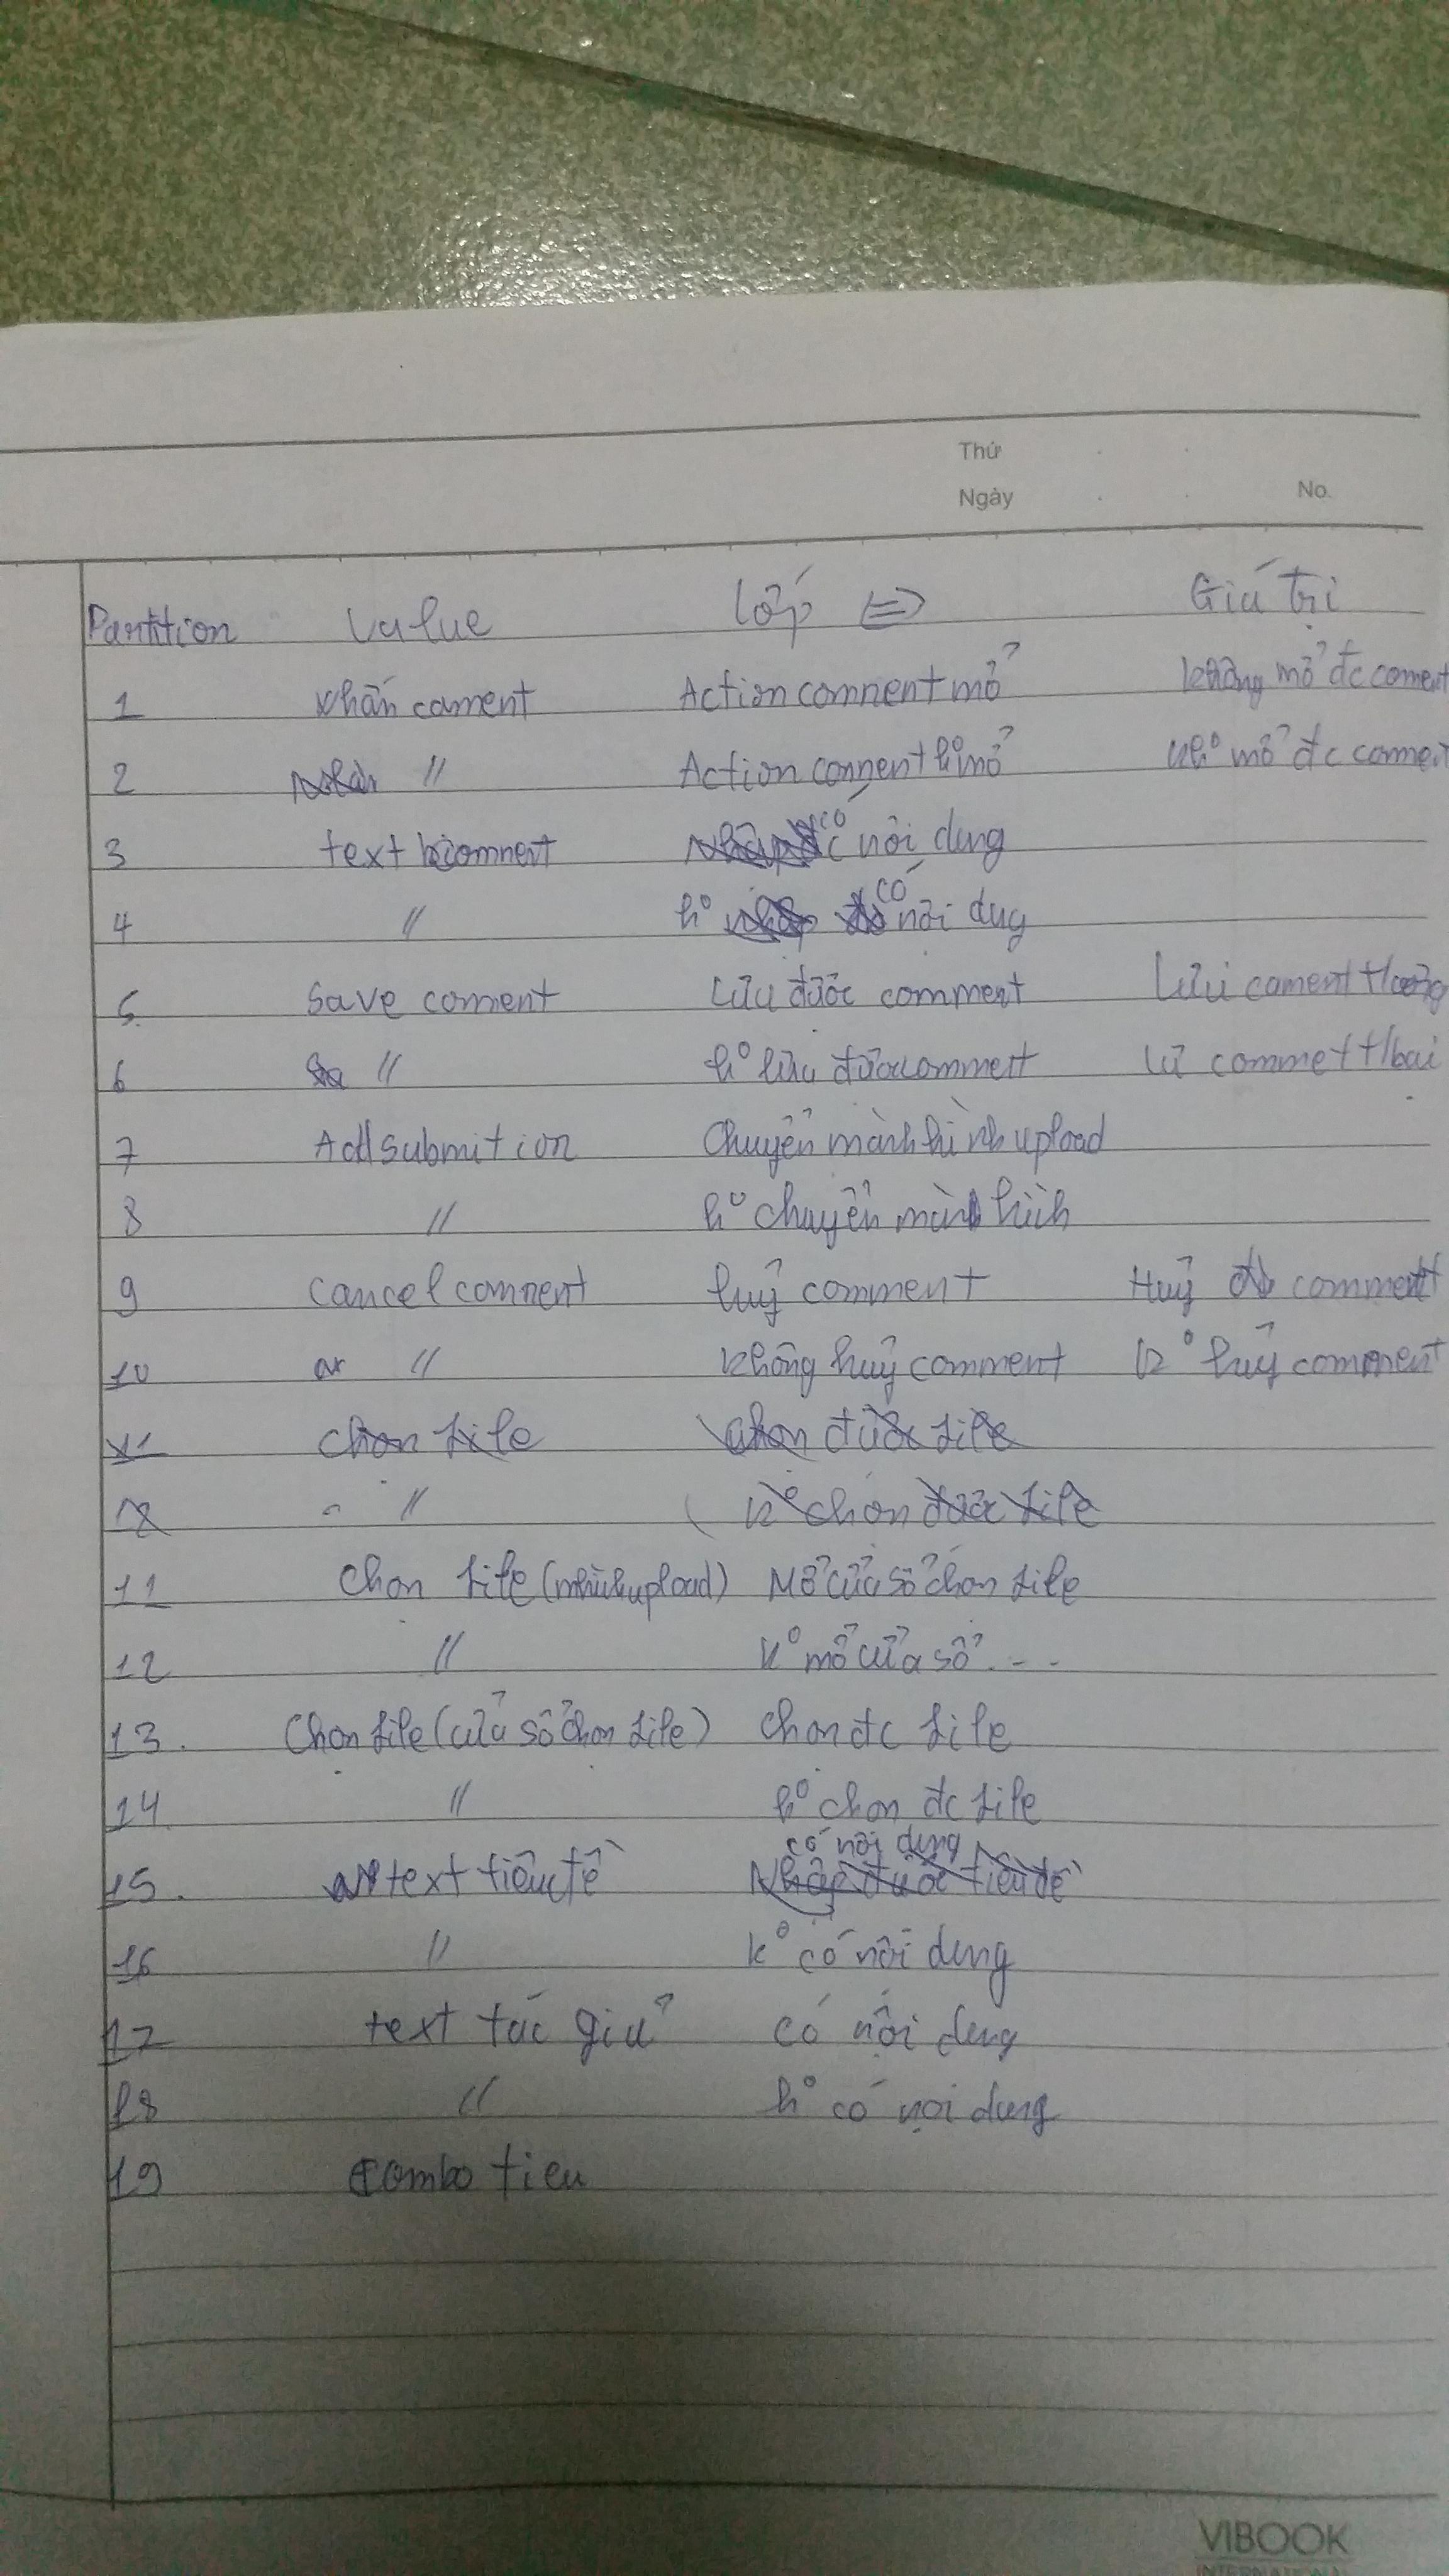 Thứ
Ngày No.
Partition Value Lớp <=> Giá trị
1 Nhấn coment Action comment mở không mở đc coment
2 // Action comment ko mở kho mở đc comment
3 text comment có nội dung
4 // ko có nội dug
5 Save coment Lưu được comment Lưu coment
6 // ko lưu được comment lư commet t/bai
7 Add submition Chuyển mành hình upload
8 // ko chuyển màn hình
9 Cancel comment huỷ comment Huỷ comment
10 // không huỷ comment ko huỷ comment
11 Chọn file được file
12 // ko chọn được file
11 Chọn file (mhình upload) Mở cửa sổ chọn file
12 // ko mở cửa sổ ...
13. Chọn file (cửa sổ chọn file) chọn đc file
14 // ko chọn đc file
có nội dung
15. text tiêu đề Nhập được tiêu đề
16 // ko có nội dung
17 text tác giả có nội dung
18 // ko có nọi dung
19 Combo tieu
VIBOOK
INTERNATIONAL